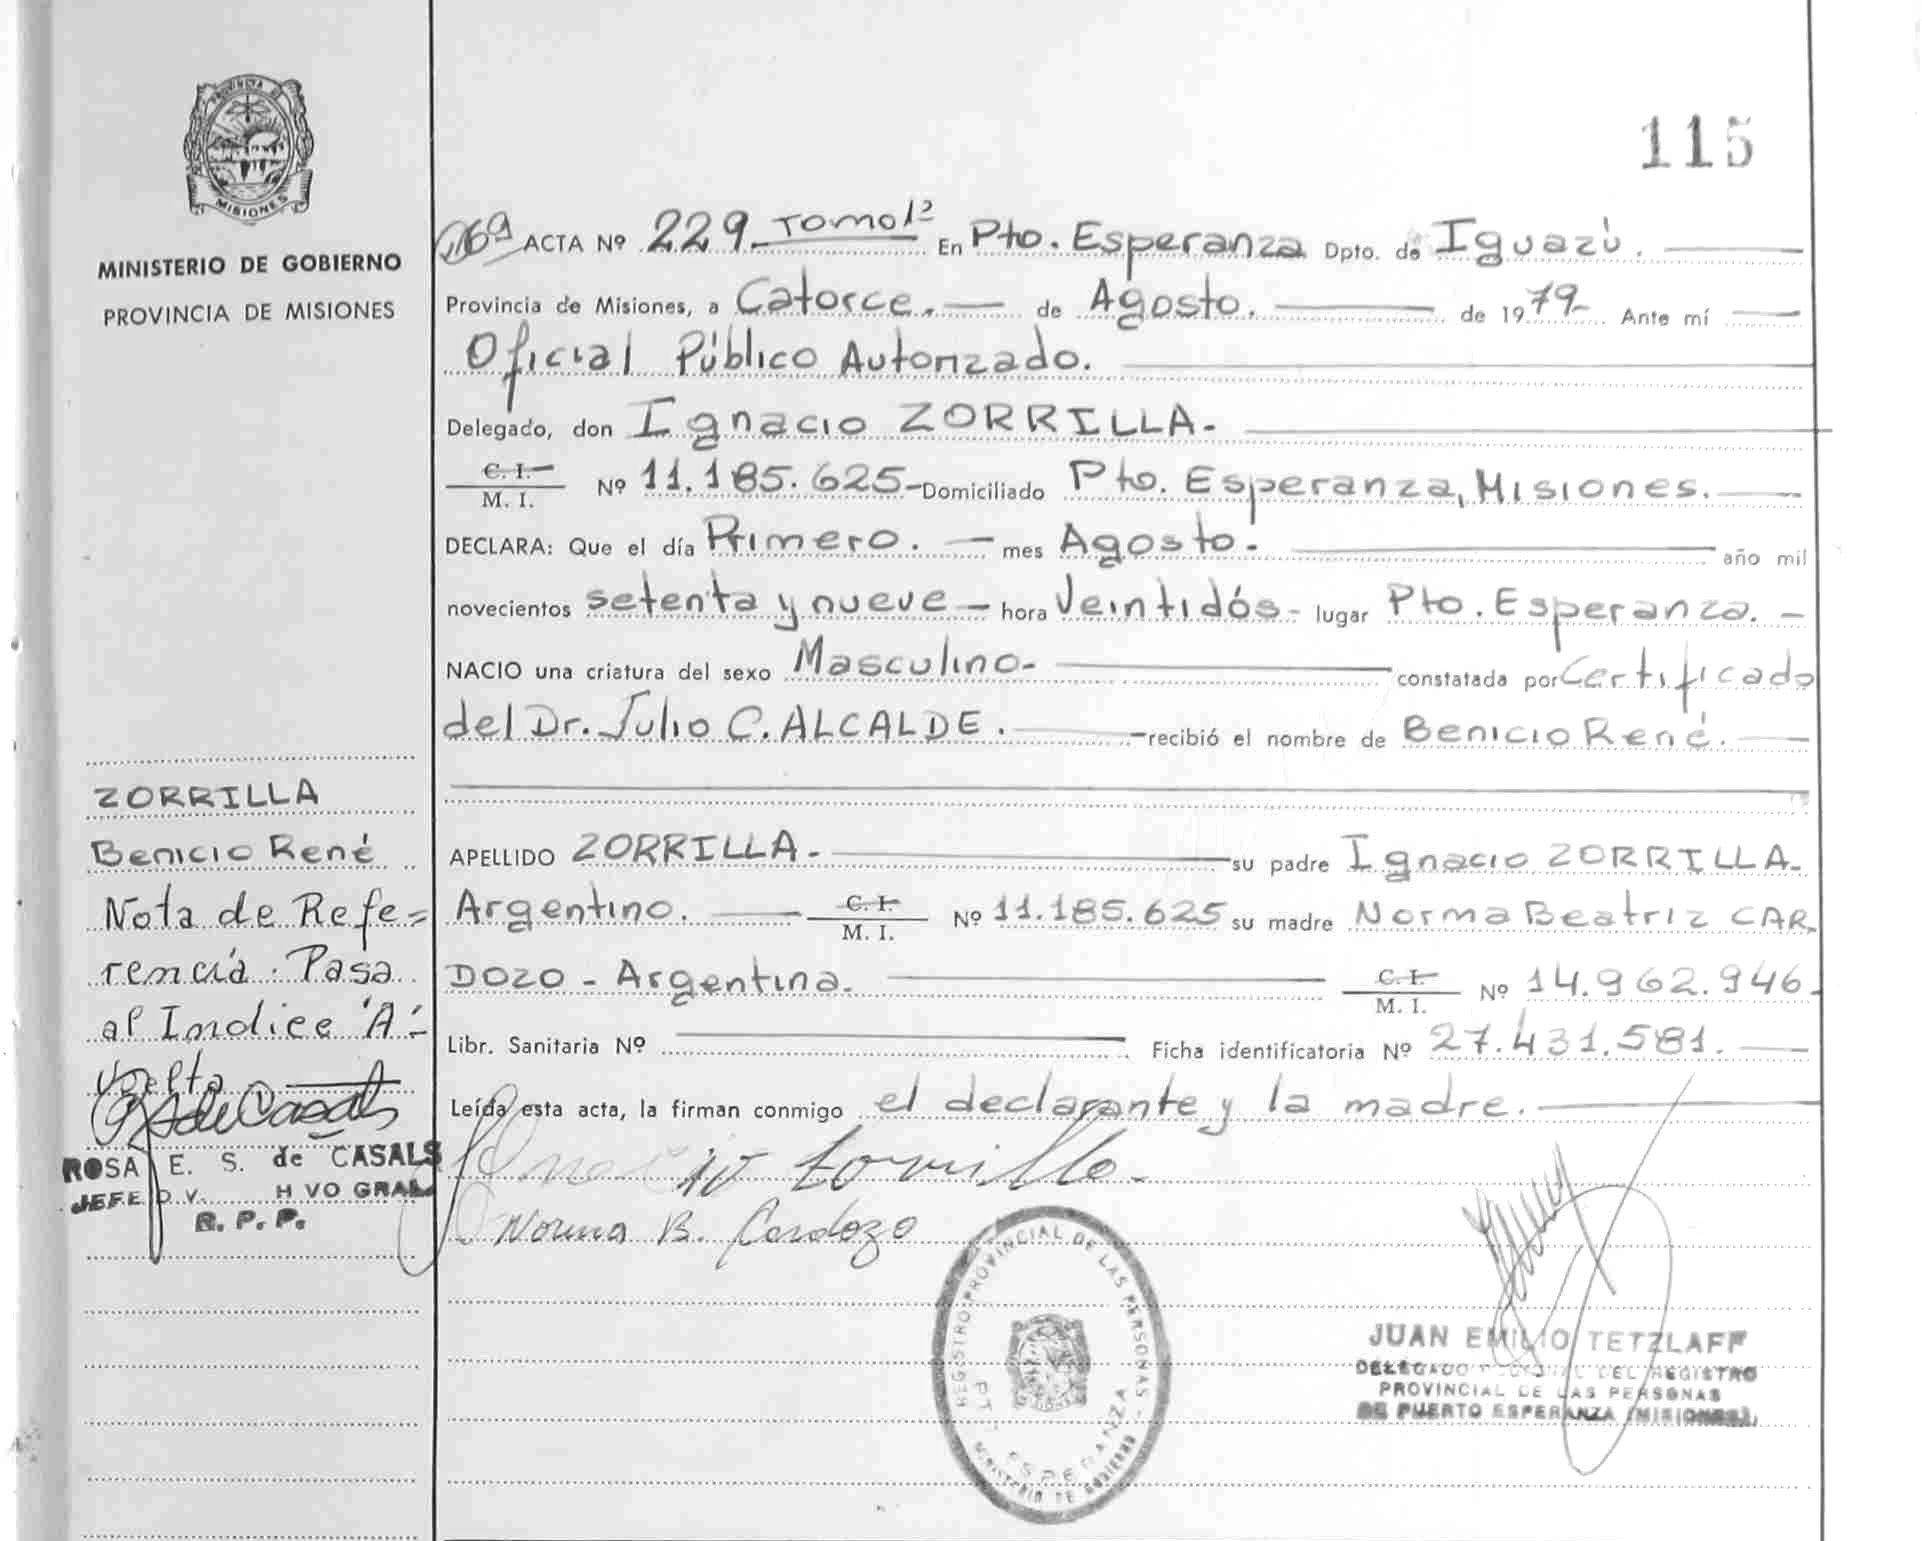 115
PROVINCIA DE
MISIONES
MINISTERIO DE GOBIERNO
PROVINCIA DE MISIONES
169 ACTA Nº 229 - Tomo 1º En Pto. Esperanza Dpto. de Iguazú.
Provincia de Misiones, a Catorce. de Agosto. de 1979- Ante mí
Oficial Público Autorizado.
Delegado, don Ignacio ZORRILLA.-
C. I.
M. I. Nº 11.185.625- Domiciliado Pto. Esperanza, Misiones.
DECLARA: Que el día Primero. - mes Agosto. año mil
novecientos setenta y nueve - hora Veintidós - lugar Pto. Esperanza. -
NACIO una criatura del sexo Masculino- constatada por Certificado
del Dr. Julio C. ALCALDE. - recibió el nombre de Benicio René.
APELLIDO ZORRILLA.- su padre Ignacio ZORRILLA.
Argentino. C. I. M. I. Nº 11.185.625 su madre Norma Beatriz CAR
DOZO - Argentina. C. I. M. I. Nº 14.962.946.
Libr. Sanitaria Nº Ficha identificatoria Nº 27.431.581.
Leída esta acta, la firman conmigo el declarante y la madre.
Ignacio Zorrilla.
Norma B. Cardozo
ZORRILLA
Benicio René
Nota de Refe=
rencia: Pasa
al Indice "A"-
Vuelta
ROSA E. S. de CASALS
JEFE
R. P. P.
REGISTRO PROVINCIAL DE LAS PERSONAS -
MINISTERIO DE GOBIERNO
PTO ESPERANZA
JUAN EMILIO TETZLAFF
DELEGADO DEL REGISTRO
PROVINCIAL DE LAS PERSONAS
DE PUERTO ESPERANZA (MISIONES)